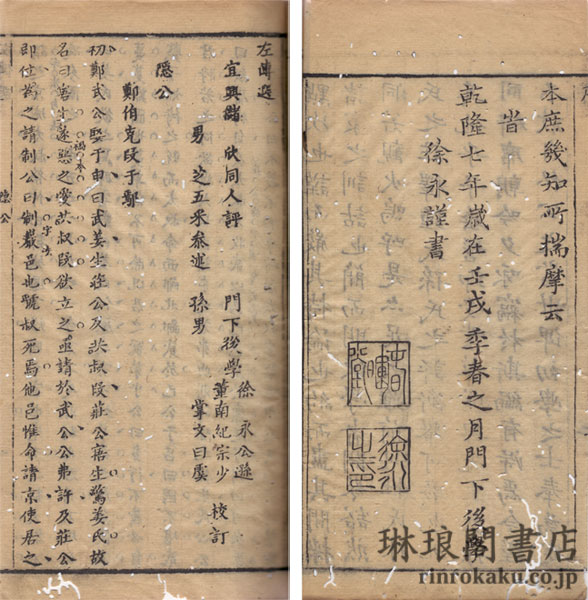 本庶幾知所揣摩云
旹
乾隆七年歲在壬戌季春之月門下後學
徐永謹書
徐永之印
左傳選
宜興儲 欣同人評 門下後學徐永公遜
董南紀宗少 校訂
男 芝五采參述 孫男 掌文曰虞
隱公
鄭伯克段于鄢
初鄭武公娶于申曰武姜生莊公及共叔段莊公寤生驚姜氏故
禍本
名曰寤生遂惡之愛共叔段欲立之亟請於武公公弗許及莊公
字法
即位為之請制公曰制巖邑也虢叔死焉他邑惟命請京使居之
隱公
琳琅閣書店
rinrokaku.co.jp